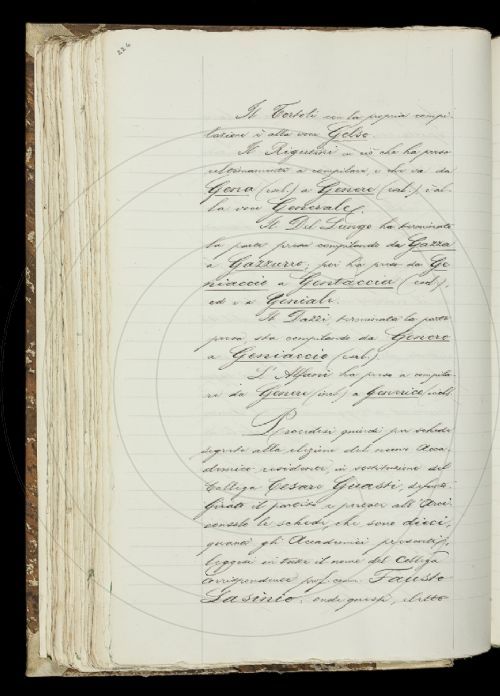 224
Il Tortoli con la propria compi-
lazione è alla voce Gelso.
Il Rigutini in ciò che ha preso
a compilare, e che va da
Gena (incl.) a Genere (escl.) è al-
la voce Generale.
Il Del Lungo ha terminato
la parte presa compilando da Gazza
a Gazzurro; poi ha preso da Ge-
niaccio a Gentaccia (escl.),
ed è a Geniale.
Il Dazzi, terminata la parte
presa sta compilando da Genero
a Geniaccio (escl.)
L'Alfani ha preso a compila-
re da Genere (incl.) a Generico (escl.
Procedesi quindi per schede
segrete alla elezione del nuovo Acca-
demico residente, in sostituzione del
Collega Cesare Guasti, defunto.
Girato il partito e portate all'Arci-
consolo le schede, che sono dieci,
quanti gli Accademici presenti,
leggesi in tutte il nome del Collega
Corrispondente prof. cav. Fausto
Lasinio, onde questi, eletto